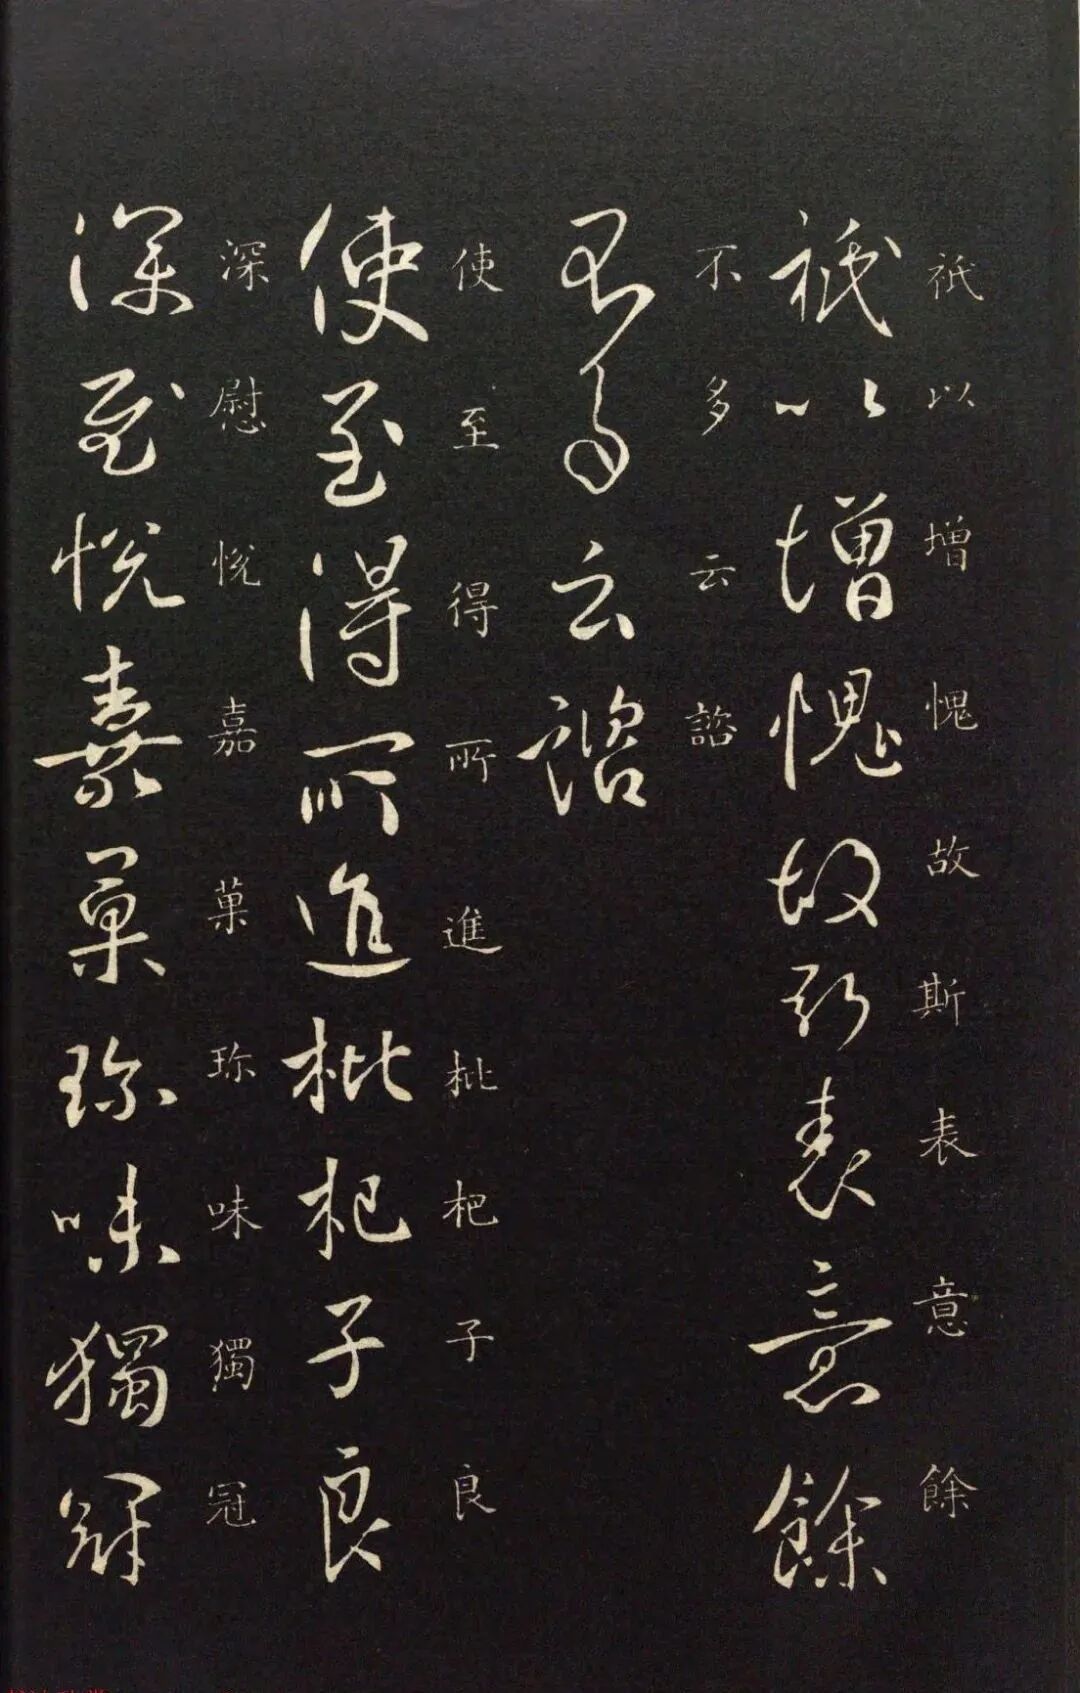 祇以增愧故斯表意餘
祇以增愧故斯表意餘
不多云諮
不多云諮
使至得所進枇杷子良
使至得所進枇杷子良
深慰悅嘉菓珎味獨冠
深慰悅嘉菓珎味獨冠